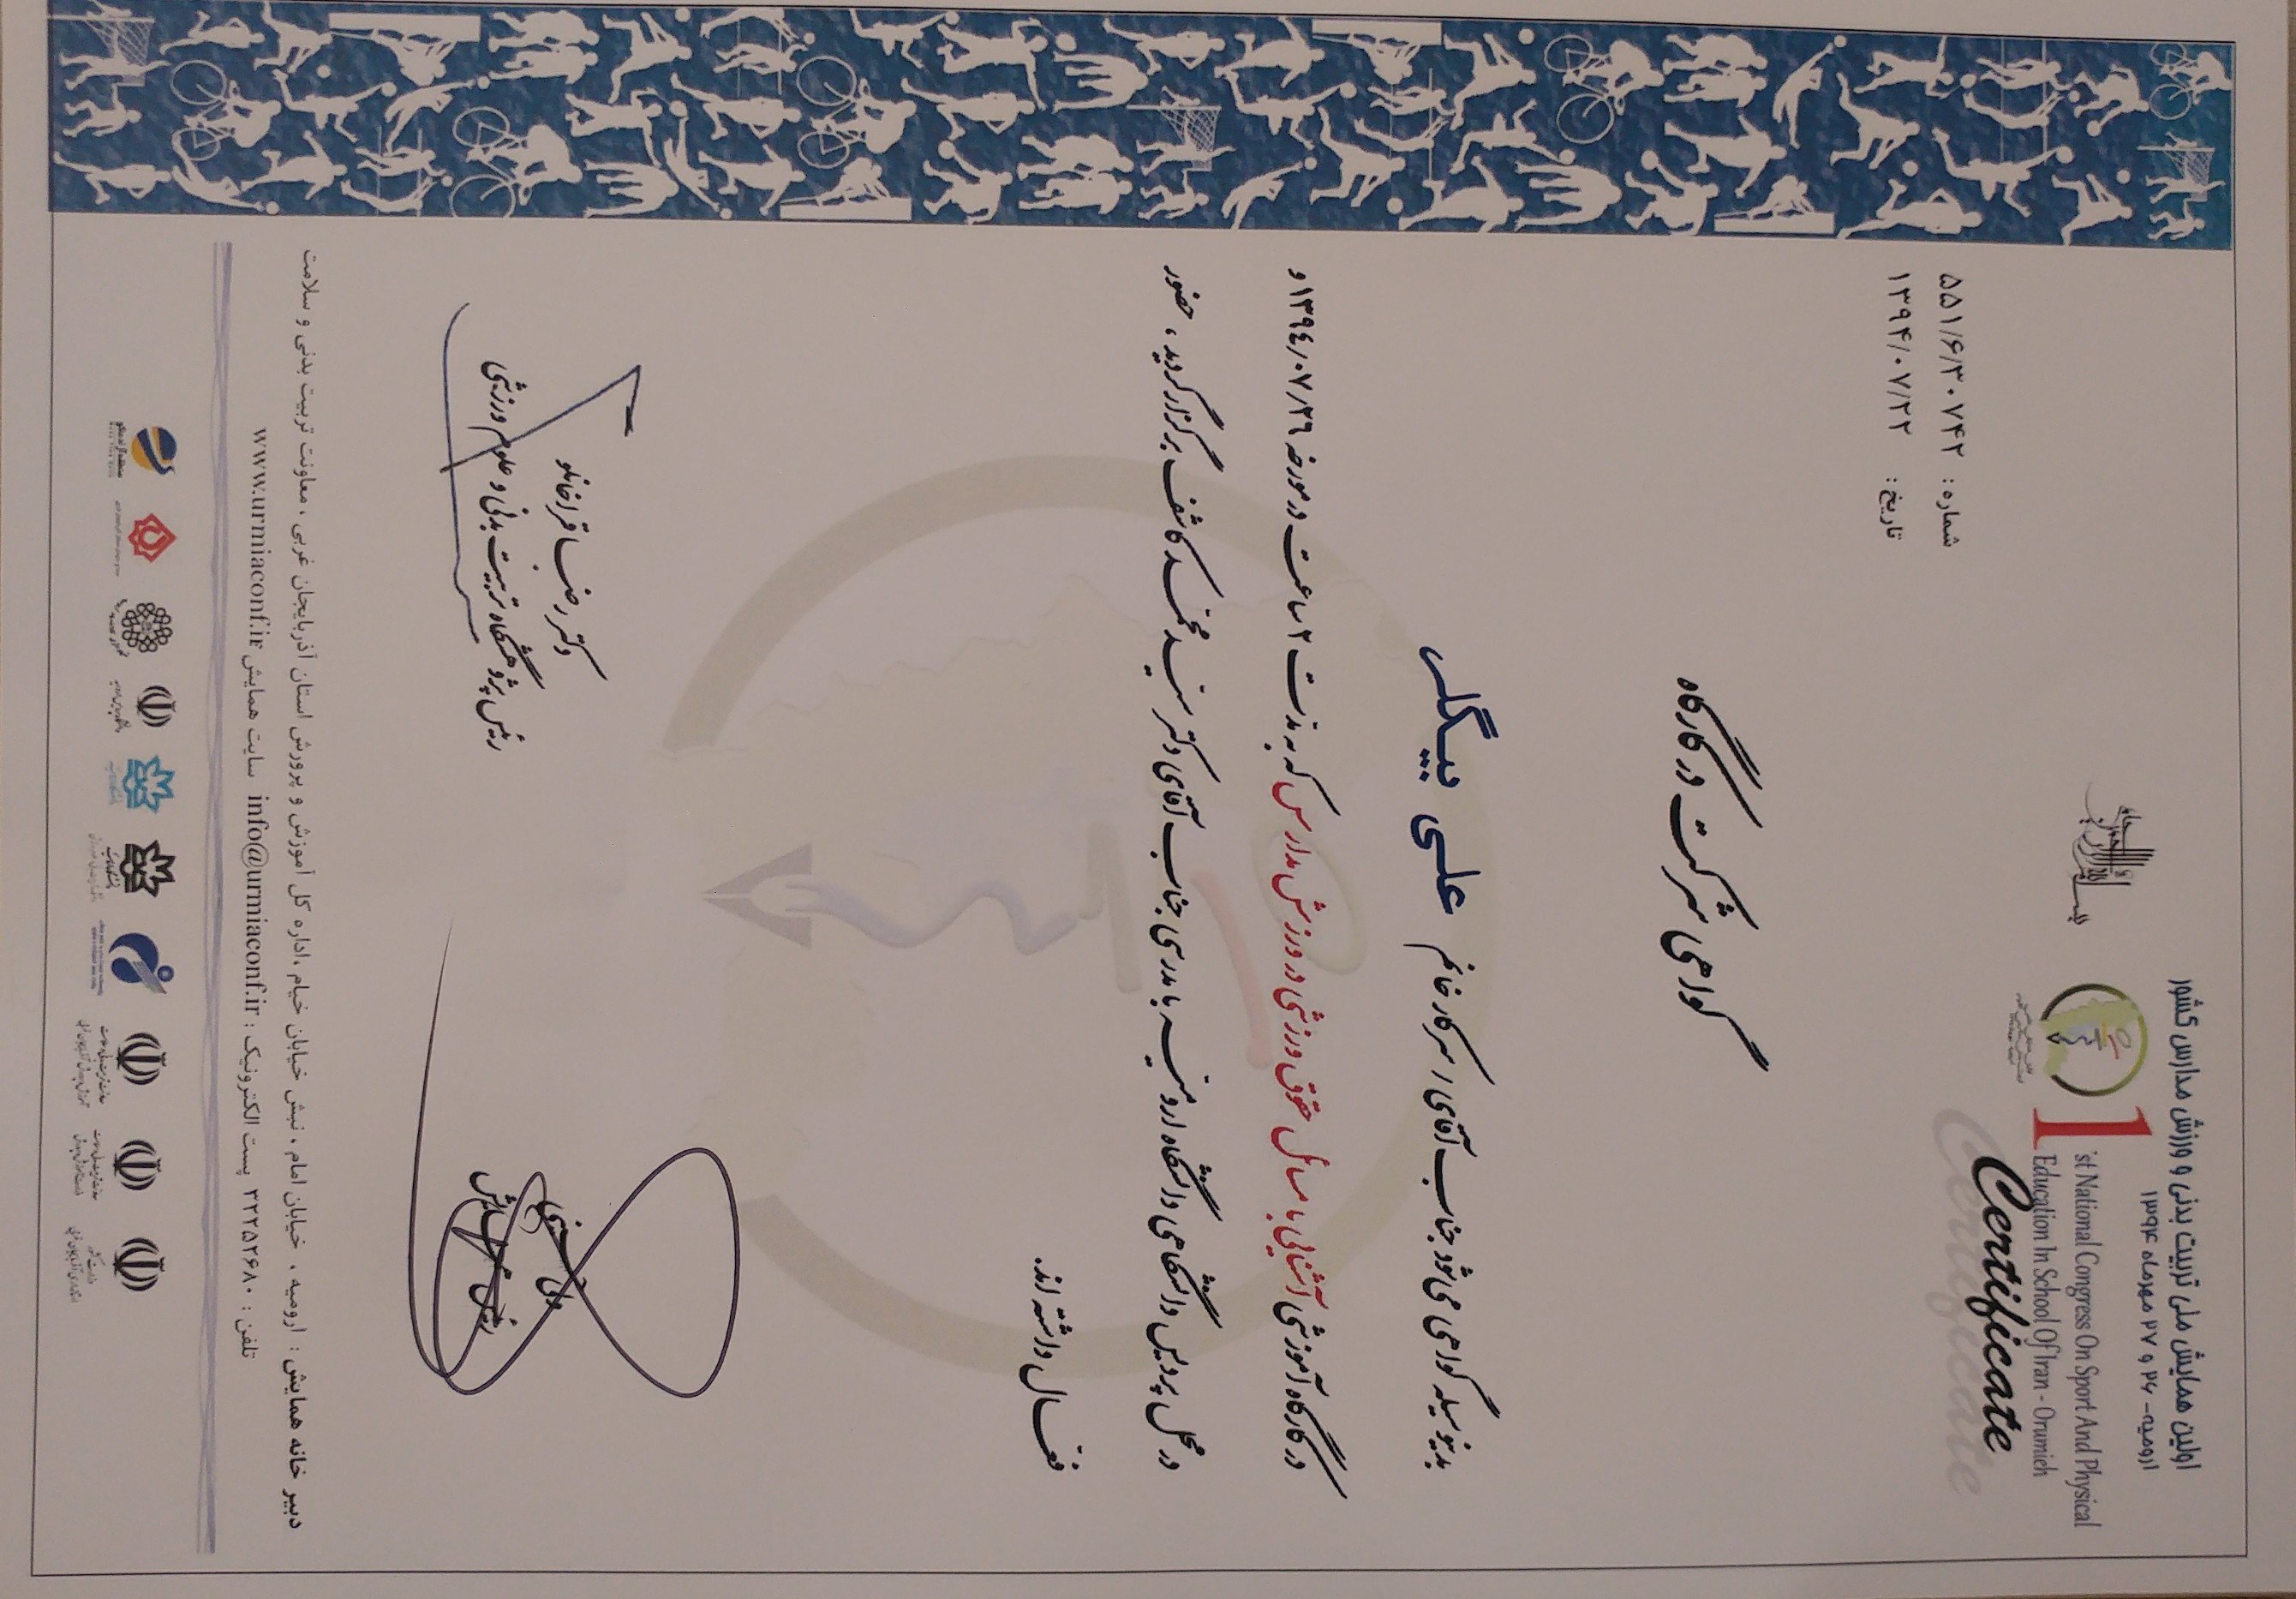 اولین همایش ملی تربیت بدنی و ورزش مدارس کشور
ارومیه- ۲۶ و ۲۷ مهرماه ۱۳۹۴
1 st National Congress On Sport And Physical
Education In School Of Iran - Orumieh
Certificate
شماره: ۵۵۱/۶/۳۰۷۴۲
تاریخ: ۱۳۹۴/۰۷/۲۲
گواهی شرکت در کارگاه
بدینوسیله گواهی می شود جناب آقای / سرکار خانم علی بیگلر
در کارگاه آموزشی آشنایی با مسائل حقوق ورزشی در ورزش مدارس که به مدت ۲ ساعت در مورخه ۱۳۹۴/۰۷/۲۶ و
در محل پردیس دانشگاهی دانشگاه ارومیه با مدرسی جناب آقای دکتر سید محمد کاشف برگزار گردید، حضور
فعال داشته اند.
دکتر رضا قراخانلو
رئیس پژوهشگاه تربیت بدنی و علوم ورزشی
ولی حسینی
رئیس همایش
دبیر خانه همایش : ارومیه ، خیابان امام ، نبش خیابان خیام ،اداره کل آموزش و پرورش استان آذربایجان غربی ، معاونت تربیت بدنی و سلامت
تلفن : ۳۲۲۵۲۶۸۰ پست الکترونیک : info@urmiaconf.ir سایت همایش www.urmiaconf.ir